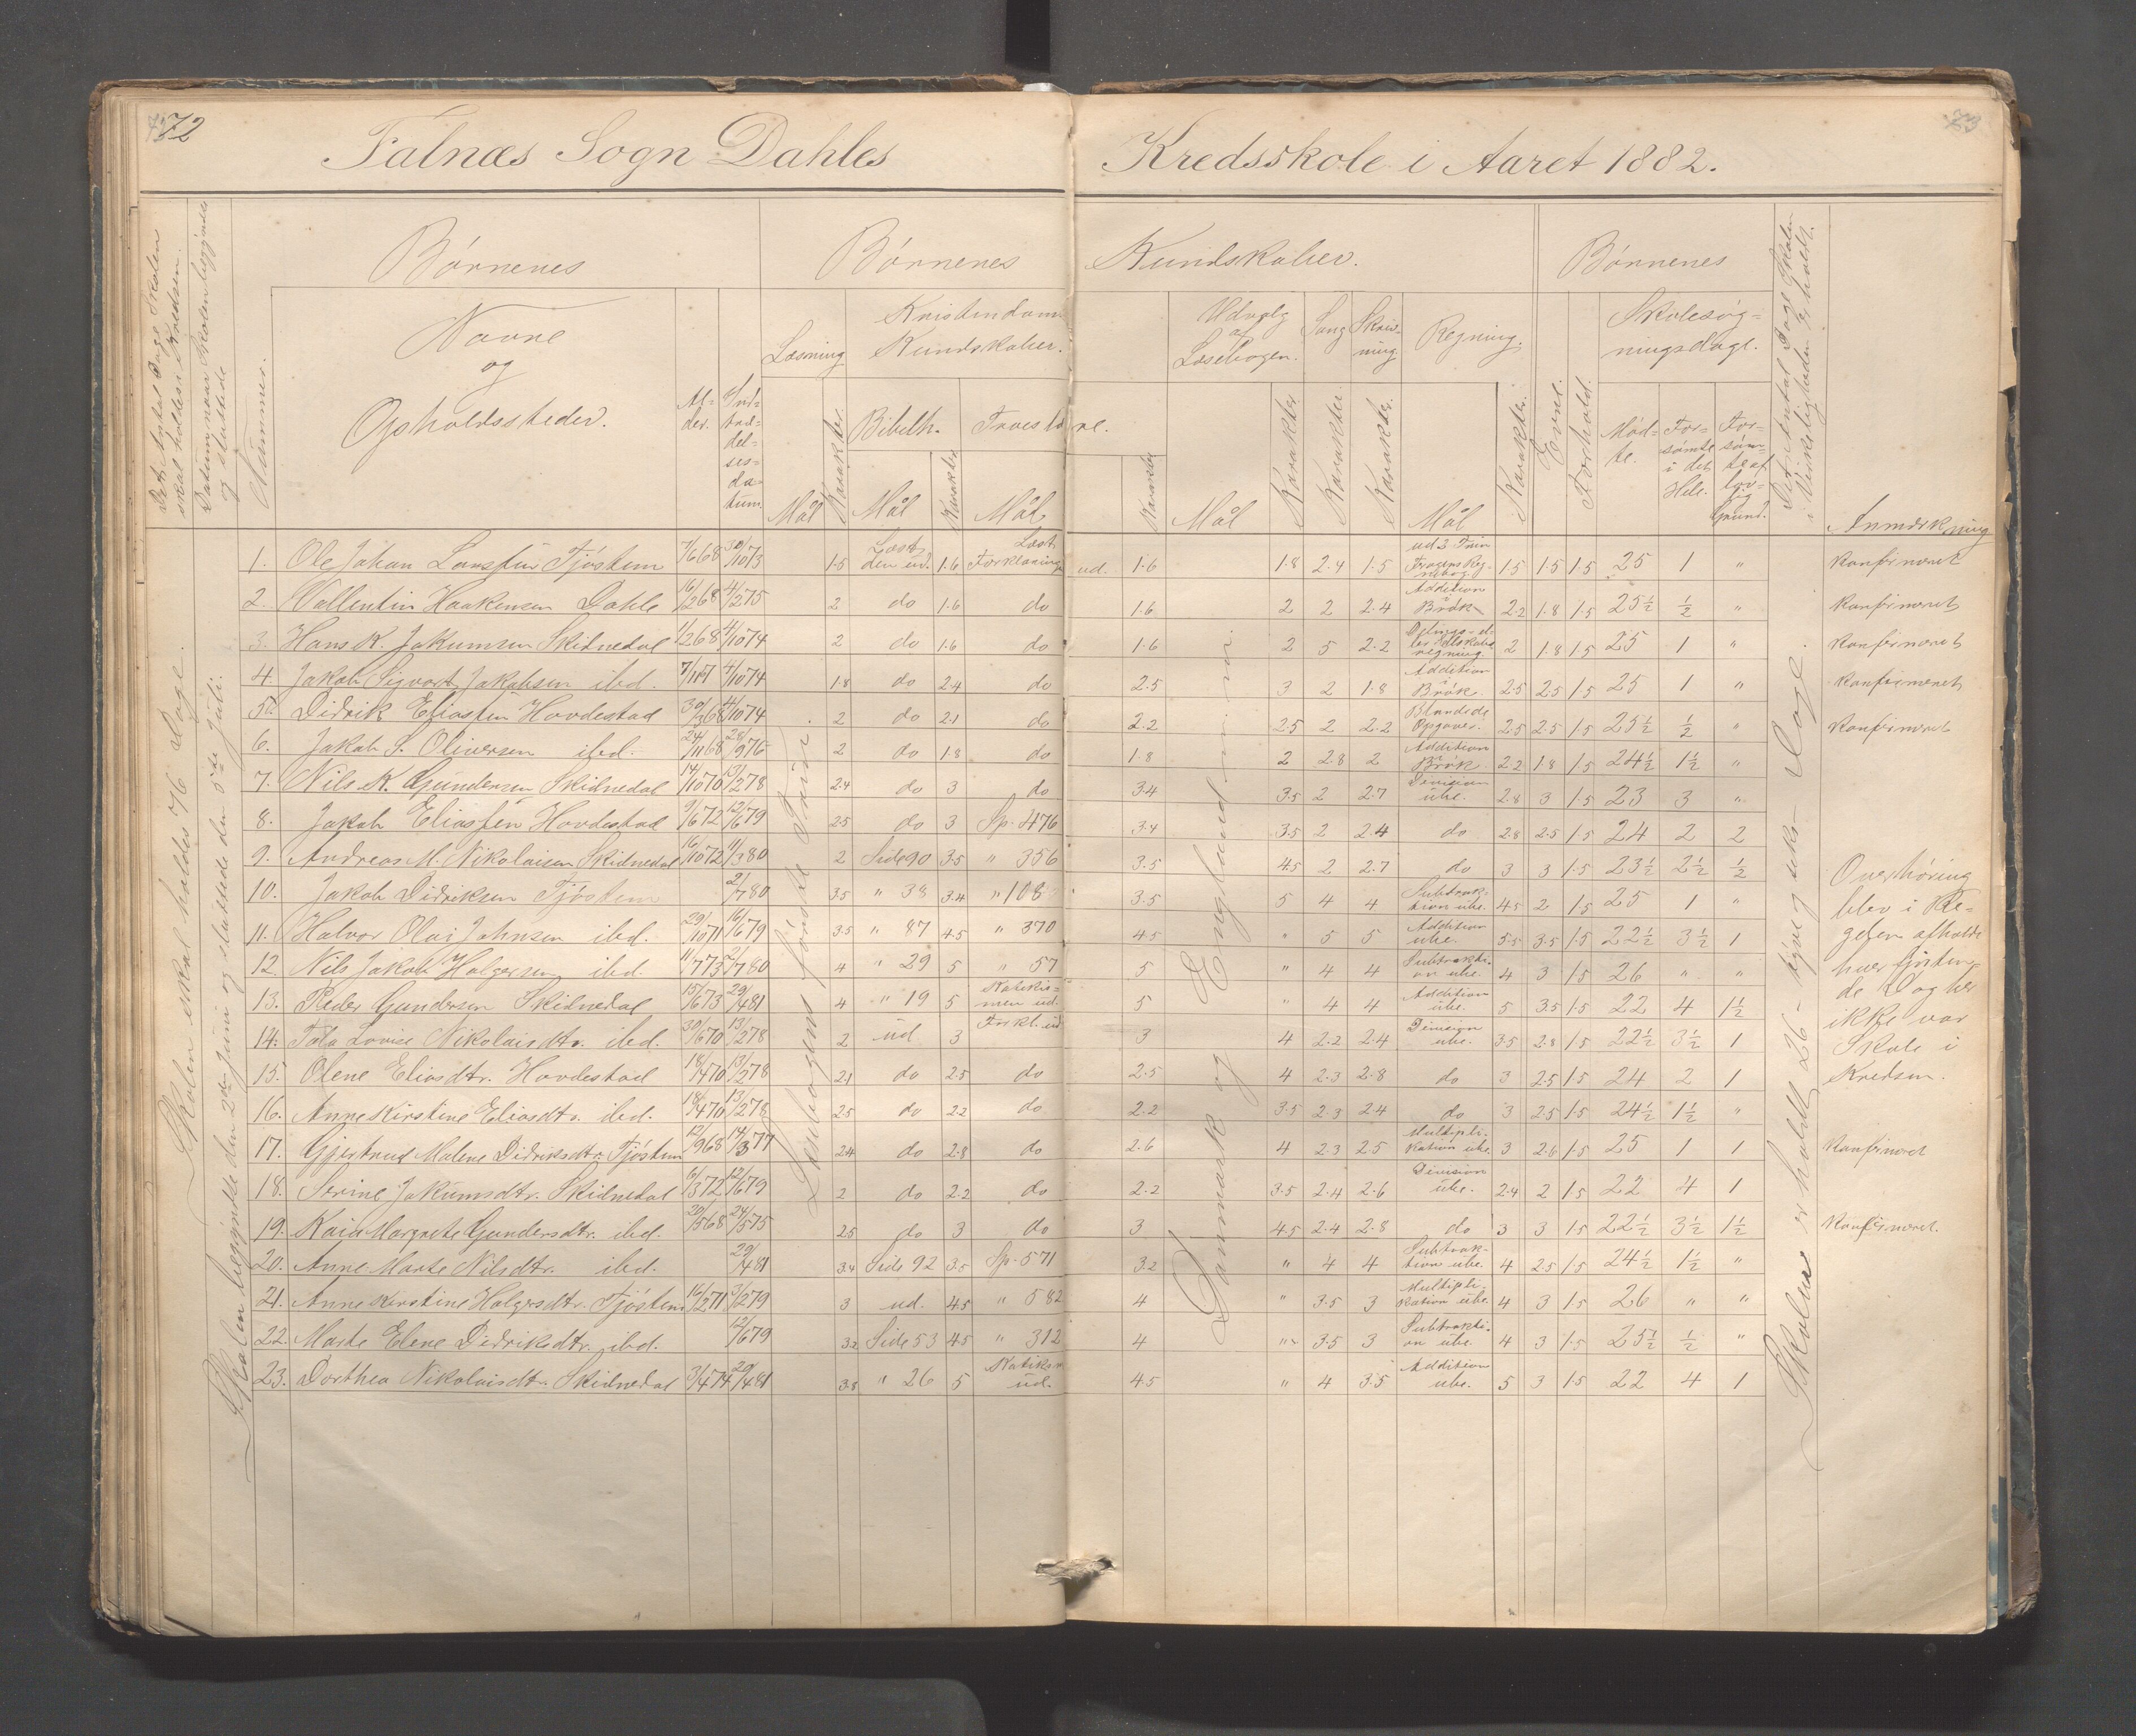 72
Falnæs Sogn Dahles Kredsskole i Aaret 1882.
Det Antal Dage Skolen skal holdes i Kredsen.
Datum naar Skolen begyndte og sluttede
Nummer.
Børnenes
Navne
og
Opholdssteder.
Al-
der.
Ind-
træ-
del-
ses-
da-
tum.
Børnenes Kundskaber.
Læsning
Kristendoms
Kundskaber.
Bibelh. Troeslære.
Mål Karakter. Mål Karakter Mål Karakter
Udvalg
af
Læsebogen.
Sang
Skriv-
ning.
Regning.
Mål Karakter Karakter. Karakter. Mål Karakter.
Evne.
Forhold.
Børnenes
Skolesøg-
ningsdage.
Mød-
te.
For-
sømte
i det
Hele.
For-
søm-
te af
lov-
lig
Grund.
Det Antal Dage Skolen i Virkeligheden er holdt.
Anmærkning
Skolen skal holdes 76 Dage.
Skolen begyndte den 2den Juni og sluttede den 5te Juli.
Danmark og England m. m.
Skolen er holdt 26 - tyve og seks - Dage.
1. Ole Johan Tjøstem 7/6 68 30/10 73 1.5 Læst den ud. 1.6 Læst Forklaringen ud. 1.6 1.8 2.4 1.5 1.5 1.5 1.5 25 1 " Konfirmeret
2. Vallentin Haakensen Dahle 16/2 68 4/2 75 2 do 1.6 do 1.6 2 2 2.4 Addition i Brøk 2.2 1.8 1.5 25½ ½ " Konfirmeret
3. Hans K. Jakumsen Skidnedal 1/2 68 4/10 74 2 do 1.6 do 1.6 2 5 2.2 2 1.8 1.5 25 1 " Konfirmeret
4. Jakob Sigvart Jakobsen ibd. 4/10 74 1.8 do 2.4 do 2.5 3 2 1.8 Addition i Brøk. 2.5 2.5 1.5 25 1 " Konfirmeret
5. Didrik Eliassen Hovdestad 4/10 74 2 do 2.1 do 2.2 2.5 2 2.2 Blandede Opgaver. 2.5 2.5 1.5 25½ ½ " Konfirmeret
6. Jakob S. Oliversen ibd. 24/11 68 28/9 76 2 do 1.8 do 1.8 2 2.8 2 Addition i Brøk 2.2 1.8 1.5 24½ 1½ "
7. Nils K. Gundersen Skidnedal 14/10 70 13/2 78 2.4 do 3 do 3.4 3.5 2 2.7 Division ube. 2.8 3 1.5 23 3 "
8. Jakob Eliassen Hovdestad 9/6 72 12/6 79 2.5 do 3 Sp. 476 3.4 3.5 2 2.4 do 2.8 2.5 1.5 24 2 2
9. Andreas M. Nikolaisen Skidnedal 16/10 72 11/3 80 2 Side 90 3.5 " 356 3.5 4.5 2 2.7 do 3 3 1.5 23½ 2½ ½
10. Jakob Didriksen Tjøstem 2/7 80 3.5 " 38 3.4 " 108 3.5 5 4 4 Subtrak- tion ube. 4.5 2 1.5 25 1 "
11. Halvor Olai Johnsen ibd. 29/10 71 16/6 79 3.5 " 87 4.5 " 370 4.5 " 5 5 Addition ube. 5.5 3.5 1.5 22½ 3½ 1
12. Nils Jakob Holgersen ibd. 11/7 73 2/7 80 4 " 29 5 " 57 5 " 4 4 Subtrakti- on ube. 4 3 1.5 26 " "
13. Peder Gundersen Skidnedal 15/6 73 29/4 81 4 " 19 5 Katekis- men ud. 5 " 4 4 Addition ube. 5 3.5 1.5 22 4 1½
14. Tala Lovise Nikolaisdtr. ibd. 30/6 70 13/2 78 2 ud 3 Forkl. ud. 3 4 2.2 2.4 Division ube. 3.5 2.8 1.5 22½ 3½ 1
15. Olene Eliasdtr. Hovdestad 18/4 70 13/2 78 2.1 do 2.5 do 2.5 4 2.3 2.8 do 3 2.5 1.5 24 2 1
16. Anne Kirstine Eliasdtr. ibd. 18/4 70 13/2 78 2.5 do 2.2 do 2.2 3.5 2.3 2.4 do 3 2.5 1.5 24½ 1½ "
17. Gjertrud Malene Didriksdtr. Tjøstem 12/9 68 14/3 77 2.4 do 2.8 do 2.6 4 2.3 2.5 Multipli- kation ube. 3 2.6 1.5 25 1 1 Konfirmeret
18. Serine Jakumsdtr. Skidnedal 6/3 72 12/6 79 2 do 2.2 do 2.2 3.5 2.4 2.6 Division ube. 2.4 2 1.5 22 4 1
19. Kaia Margrete Gundersdtr. ibd. 20/5 68 24/5 75 2.5 do 3 do 3 4.5 2.4 2.8 do 3 3 1.5 22½ 3½ 1½ Konfirmeret.
20. Anne Marte Nilsdtr. ibd. 29/4 81 3.4 Side 92 3.5 Sp. 571 3.2 " 4 4 Subtrak- tion ube. 4 2.5 1.5 24½ 1½ "
21. Anne Kirstine Holgersdtr. Tjøstem 16/2 71 3/2 79 3 ud. 4.5 " 582 4 " 3.5 3 Multipli- kation ube. 4 3 1.5 26 " "
22. Marte Elene Didriksdtr. ibd. 12/6 79 3.2 Side 53 4.5 " 312 4 " 3.5 3 Subtrakti- on ube. 4 3 1.5 25½ ½ "
23. Dorthea Nikolaisdtr. Skidnedal 3/4 74 29/4 81 3.8 " 26 5 ud. 4.5 " 4 3.5 Addition ube. 5 3 1.5 22 4 1
Overhøring
blev i Re-
gelen afholdt
hver
de Dag her
ikke var
Skole i
Kredsen.